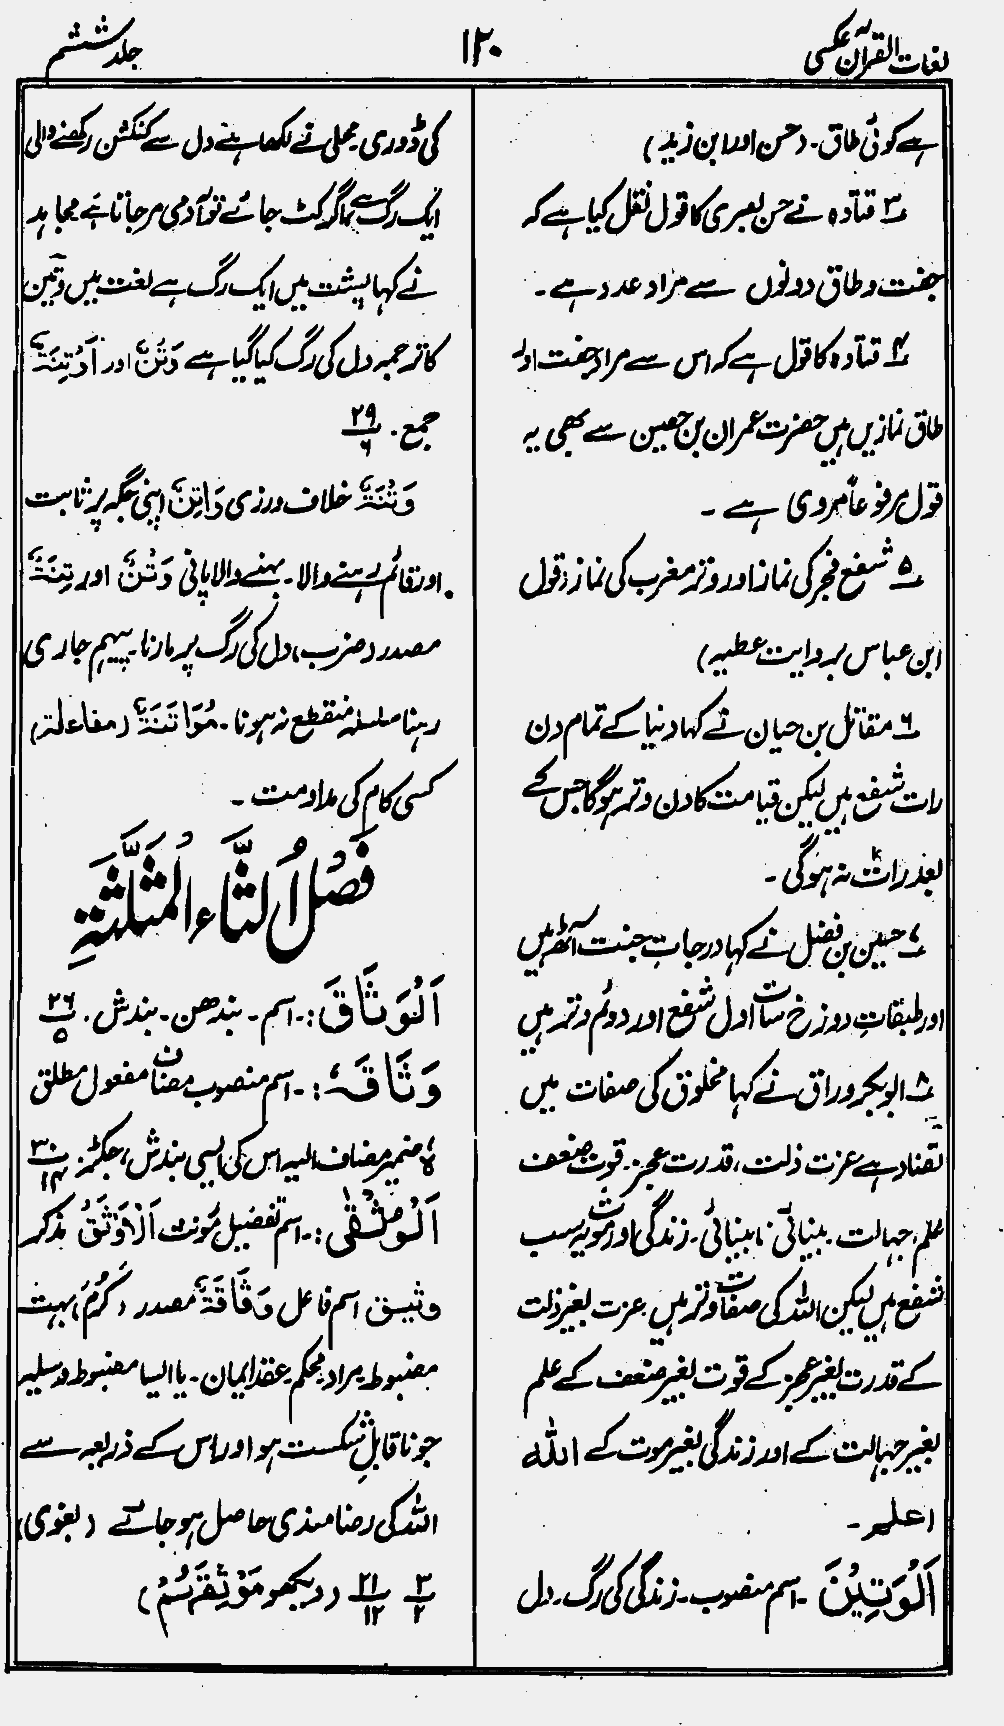 لغات القرآن عکسی
۱۲۰
جلد ششم
ہے کوئی طاق۔ (حسن اور ابن زید)
۳ قتادہ نے حسن بصری کا قول نقل کیا ہے کہ
جفت و طاق دونوں سے مراد عدد ہے۔
۴ قتادہ کا قول ہے کہ اس سے مراد جفت اور
طاق نمازیں ہیں حضرت عمران بن حصین سے بھی یہ
قول مرفوعاً مروی ہے۔
۵ شفع فجر کی نماز اور وتر مغرب کی نماز (قول
ابن عباس بروایت عطیہ)
۶ مقاتل بن حیان نے کہا دنیا کے تمام دن
رات شفع ہیں لیکن قیامت کا دن وتر ہوگا جس کے
بعد رات نہ ہوگی۔
۷ حسین بن فضل نے کہا درجات جنت آٹھ ہیں
اور طبقات دوزخ سات اول شفع اور دوئم وتر ہیں
۸ ابوبکر وراق نے کہا مخلوق کی صفات میں
تضاد ہے عزت ذلت، قدرت عجز۔ قوت ضعف
علم، جہالت۔ بینائی نابینائی۔ زندگی اور موت یہ سب
شفع ہیں لیکن اللہ کی صفات وتر ہیں۔ عزت بغیر ذلت
کے قدرت بغیر عجز کے قوت بغیر ضعف کے علم
بغیر جہالت کے اور زندگی بغیر موت کے اللہ
اعلم۔
اَلْوَتِیْنَ ۔ اسم منصوب۔ زندگی کی رگ۔ دل
کی ڈوری۔ محلی نے لکھا ہے دل سے کنکشن رکھنے والی
ایک رگ ہے اگر کٹ جائے تو آدمی مر جاتا ہے مجاہد
نے کہا پشت میں ایک رگ ہے لغت میں وتین
کا ترجمہ دل کی رگ کیا گیا ہے وُتُنٌ اور اَوْتِنَةٌ
جمع۔ ۲۹/۶
وَتُنَةٌ خلاف ورزی وَاتِنٌ اپنی جگہ پر ثابت
اور قائم رہنے والا۔ بہنے والا پانی وَتْنٌ اور تِنَةٌ
مصدر (ضرب) دل کی رگ پر مارنا۔ پیہم جاری
رہنا سلسلہ منقطع نہ ہونا۔ مُوَاتَنَةٌ (مفاعلہ)
کسی کام کی مداومت۔
فَصْلُ الثَّاءِ الْمُثَلَّثَةِ
اَلْوَثَاقَ :۔ اسم۔ بندھن۔ بندش۔ ۲۶/۵
وَثَاقَهٗ :۔ اسم منصوب مضاف مفعول مطلق
ہٗ ضمیر مضاف الیہ اس کی ایسی بندش، جکڑنا ۳۰/۱۴
اَلْوُثْقٰی :۔ اسم تفضیل مونث اَلْاَوْثَقُ مذکر
وثیق اسم فاعل وَثَاقَةٌ مصدر (کَرُمَ) بہت
مضبوط۔ مراد محکم۔ عقد ایمان۔ یا ایسا مضبوط وسیلہ
جو ناقابل شکست ہو اور اس کے ذریعہ سے
اللہ کی رضامندی حاصل ہو جائے (بغوی)
۳/۲ ۲۱/۱۲ (دیکھو مَوْثِقَهُمْ)